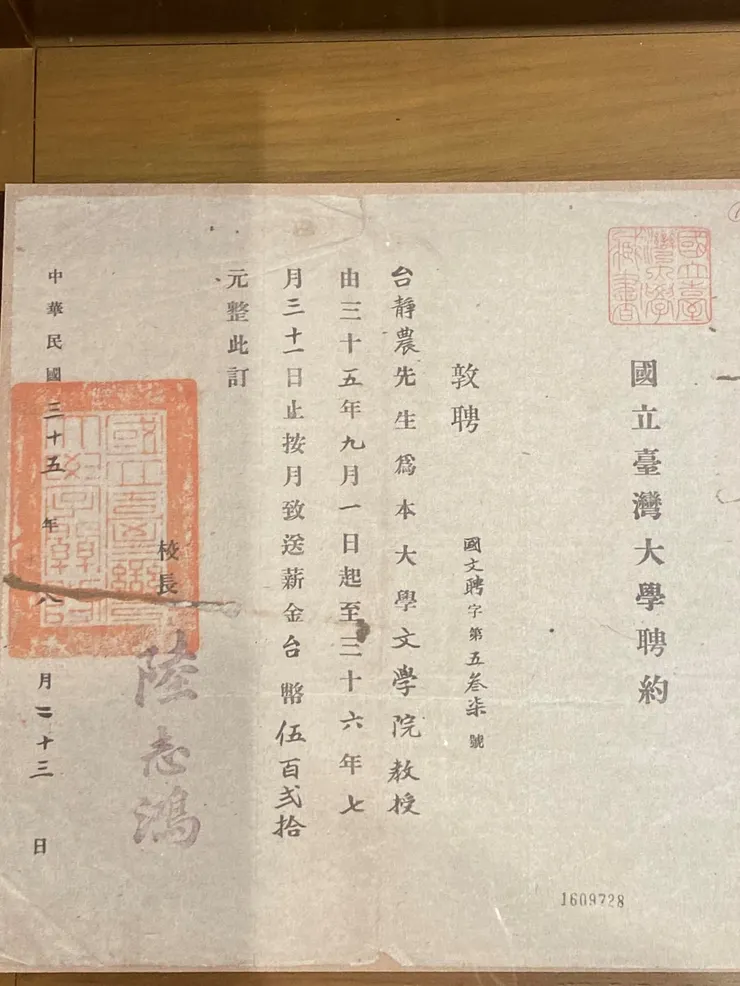 國立臺灣大學藏書
國立臺灣大學聘約
國文聘字第五叁柒號
敦聘
台靜農先生為本大學文學院教授
由三十五年九月一日起至三十六年七
月三十一日止按月致送薪金台幣伍百弍拾
元整此訂
校長 陸志鴻
中華民國三十五年 八月二十三日
1609728